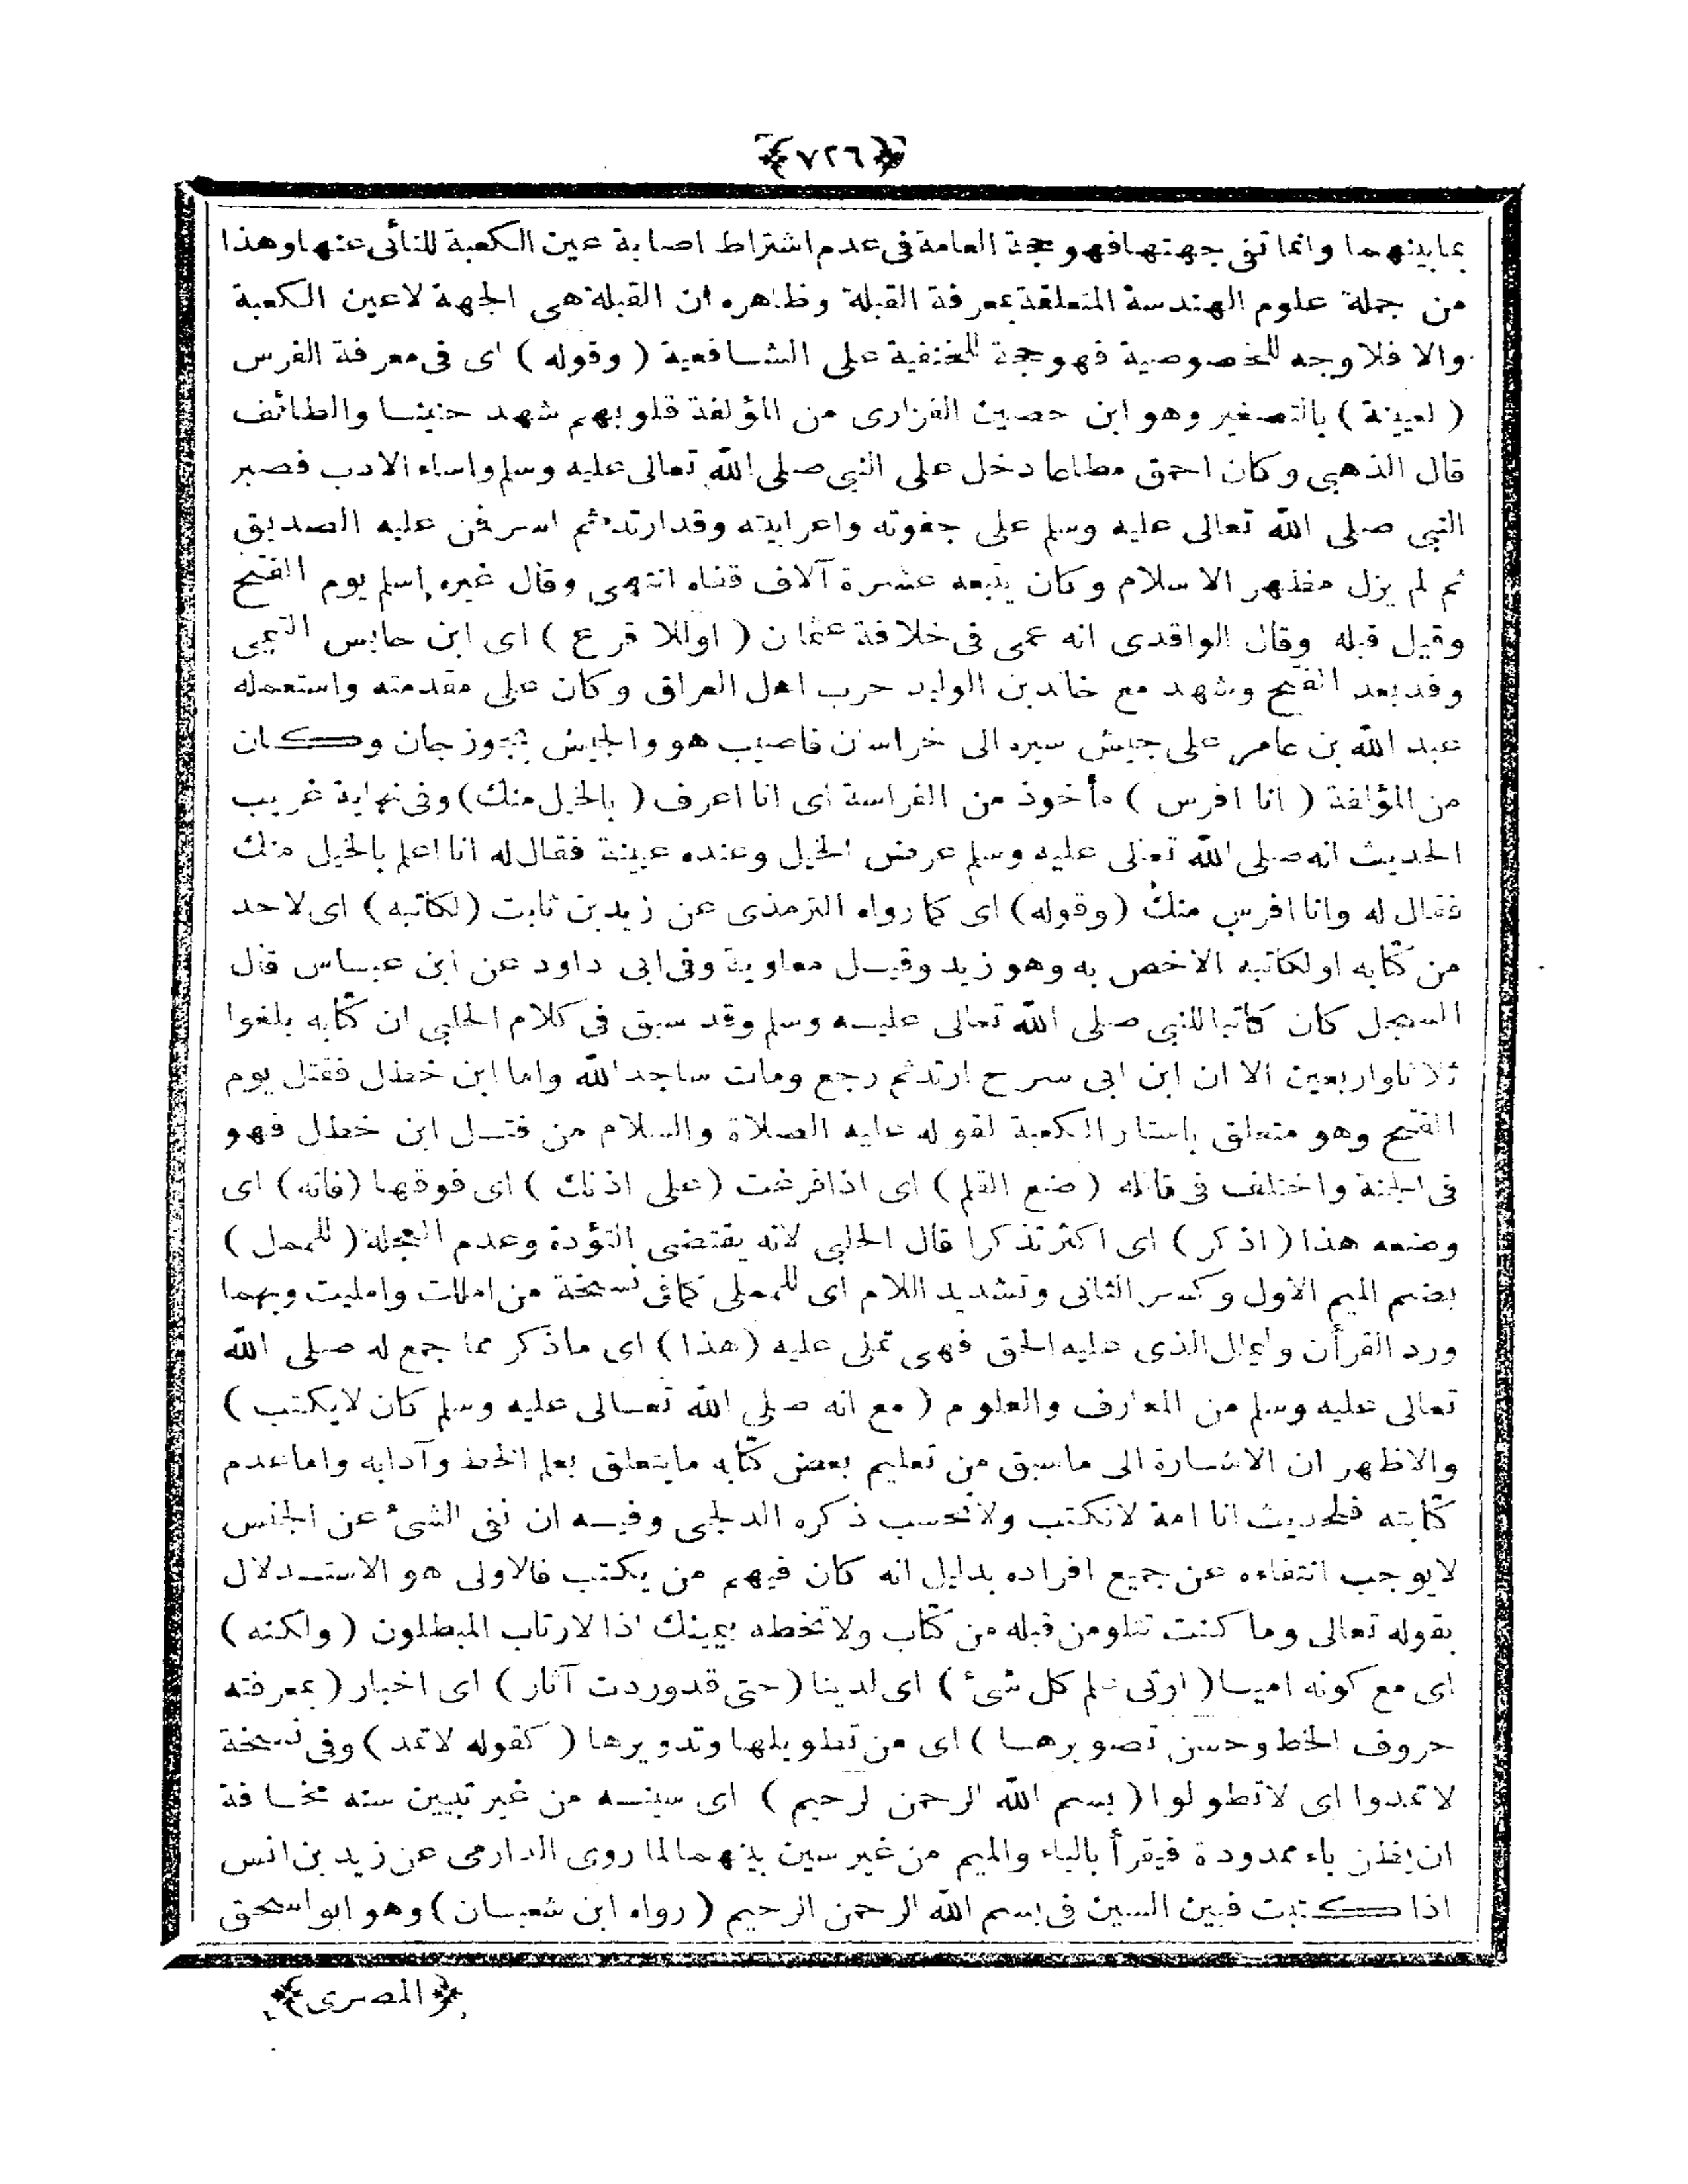 ﴿٧٢٦﴾
بما بينهما وانما تنى جهتها فهو حجة العامة فى عدم اشتراط اصابة عين الكعبة للنائى عنها وهذا
من جملة علوم الهندسة المتعلقة بمعرفة القبلة وظاهره ان القبلة هى الجهة لاعين الكعبة
والا فلا وجه للخصوصية فهو حجة للحنفية على الشافعية ( وقوله ) اى فى معرفة الفرس
( لعيينة ) بالتصغير وهو ابن حصين الفزارى من المؤلفة قلوبهم شهد حنينا والطائف
قال الذهبي وكان احمق مطاعا دخل على النبي صلى الله تعالى عليه وسلم واساء الادب فصبر
النبي صلى الله تعالى عليه وسلم على جفوته واعرابيته وقد ارتد ثم اسر فمن عليه الصديق
ثم لم يزل مظهر الاسلام وكان يتبعه عشرة آلاف قناه انتهى وقال غيره اسلم يوم الفتح
وقيل قبله وقال الواقدى انه عمى فى خلافة عثمان ( اوللا قرع ) اى ابن حابس التميى
وفد بعد الفتح وشهد مع خالد بن الوليد حرب اهل العراق وكان على مقدمته واستعمله
عبد الله بن عامر على جيش سيره الى خراسان فاصيب هو والجيش بجوزجان وكان
من المؤلفة ( انا افرس ) مأخوذ من الفراسة اى انا اعرف ( بالخيل منك ) وفى نهاية غريب
الحديث انه صلى الله تعالى عليه وسلم عرض الخيل وعنده عيينة فقال له انا اعلم بالخيل منك
فقال له وانا افرس منك ( وقوله ) اى كما رواه الترمذى عن زيد بن ثابت ( لكاتبه ) اى لاحد
من كتابه او لكاتبه الاخص به وهو زيد وقيل معاوية وفى ابى داود عن ابن عباس قال
السجل كان كاتبا للنبي صلى الله تعالى عليه وسلم وقد سبق فى كلام الحلبي ان كتابه بلغوا
ثلاثا واربعين الا ان ابن ابى سرح ارتد ثم رجع ومات ساجد الله واما ابن خطل فقتل يوم
الفتح وهو متعلق باستار الكعبة لقوله عليه الصلاة والسلام من قتل ابن خطل فهو
فى الجنة واختلف فى قاتله ( ضع القلم ) اى اذا فرغت ( على اذنك ) اى فوقها ( فانه ) اى
وضعه هذا ( اذكر ) اى اكثر تذكرا قال الحلبي لانه يقتضى التؤدة وعدم العجلة ( للممل )
بضم الميم الاول وكسر الثانى وتشديد اللام اى للمملى كما فى نسخة من امللت وامليت وبهما
ورد القرأن وليملل الذى عليه الحق فهى تملى عليه ( هذا ) اى ماذكر مما جمع له صلى الله
تعالى عليه وسلم من المعارف والعلوم ( مع انه صلى الله تعالى عليه وسلم كان لايكتب )
والاظهر ان الاشارة الى ماسبق من تعليم بعض كتابه مايتعلق بعلم الخط وآدابه واما عدم
كتابته فلحديث انا امة لانكتب ولانحسب ذكره الدلجى وفيه ان نفى الشئ عن الجنس
لايوجب انتفاءه عن جميع افراده بدليل انه كان فيهم من يكتب فالاولى هو الاستدلال
بقوله تعالى وما كنت تتلو من قبله من كتاب ولا تخطه بيمينك اذا لارتاب المبطلون ( ولكنه )
اى مع كونه اميا ( اوتى علم كل شئ ) اى لدينا ( حتى قد وردت آثار ) اى اخبار ( بمعرفته
حروف الخط وحسن تصويرها ) اى من تطويلها وتدويرها ( كقوله لاتمد ) وفى نسخة
لاتمدوا اى لاتطولوا ( بسم الله الرحمن الرحيم ) اى سينه من غير تبيين سنه مخافة
ان يظن باء ممدودة فيقرأ بالباء والميم من غير سين بينهما لما روى الدارمى عن زيد بن انس
اذا كتبت فبين السين فى بسم الله الرحمن الرحيم ( رواه ابن شعبان ) وهو ابو اسحق
﴿المصرى﴾